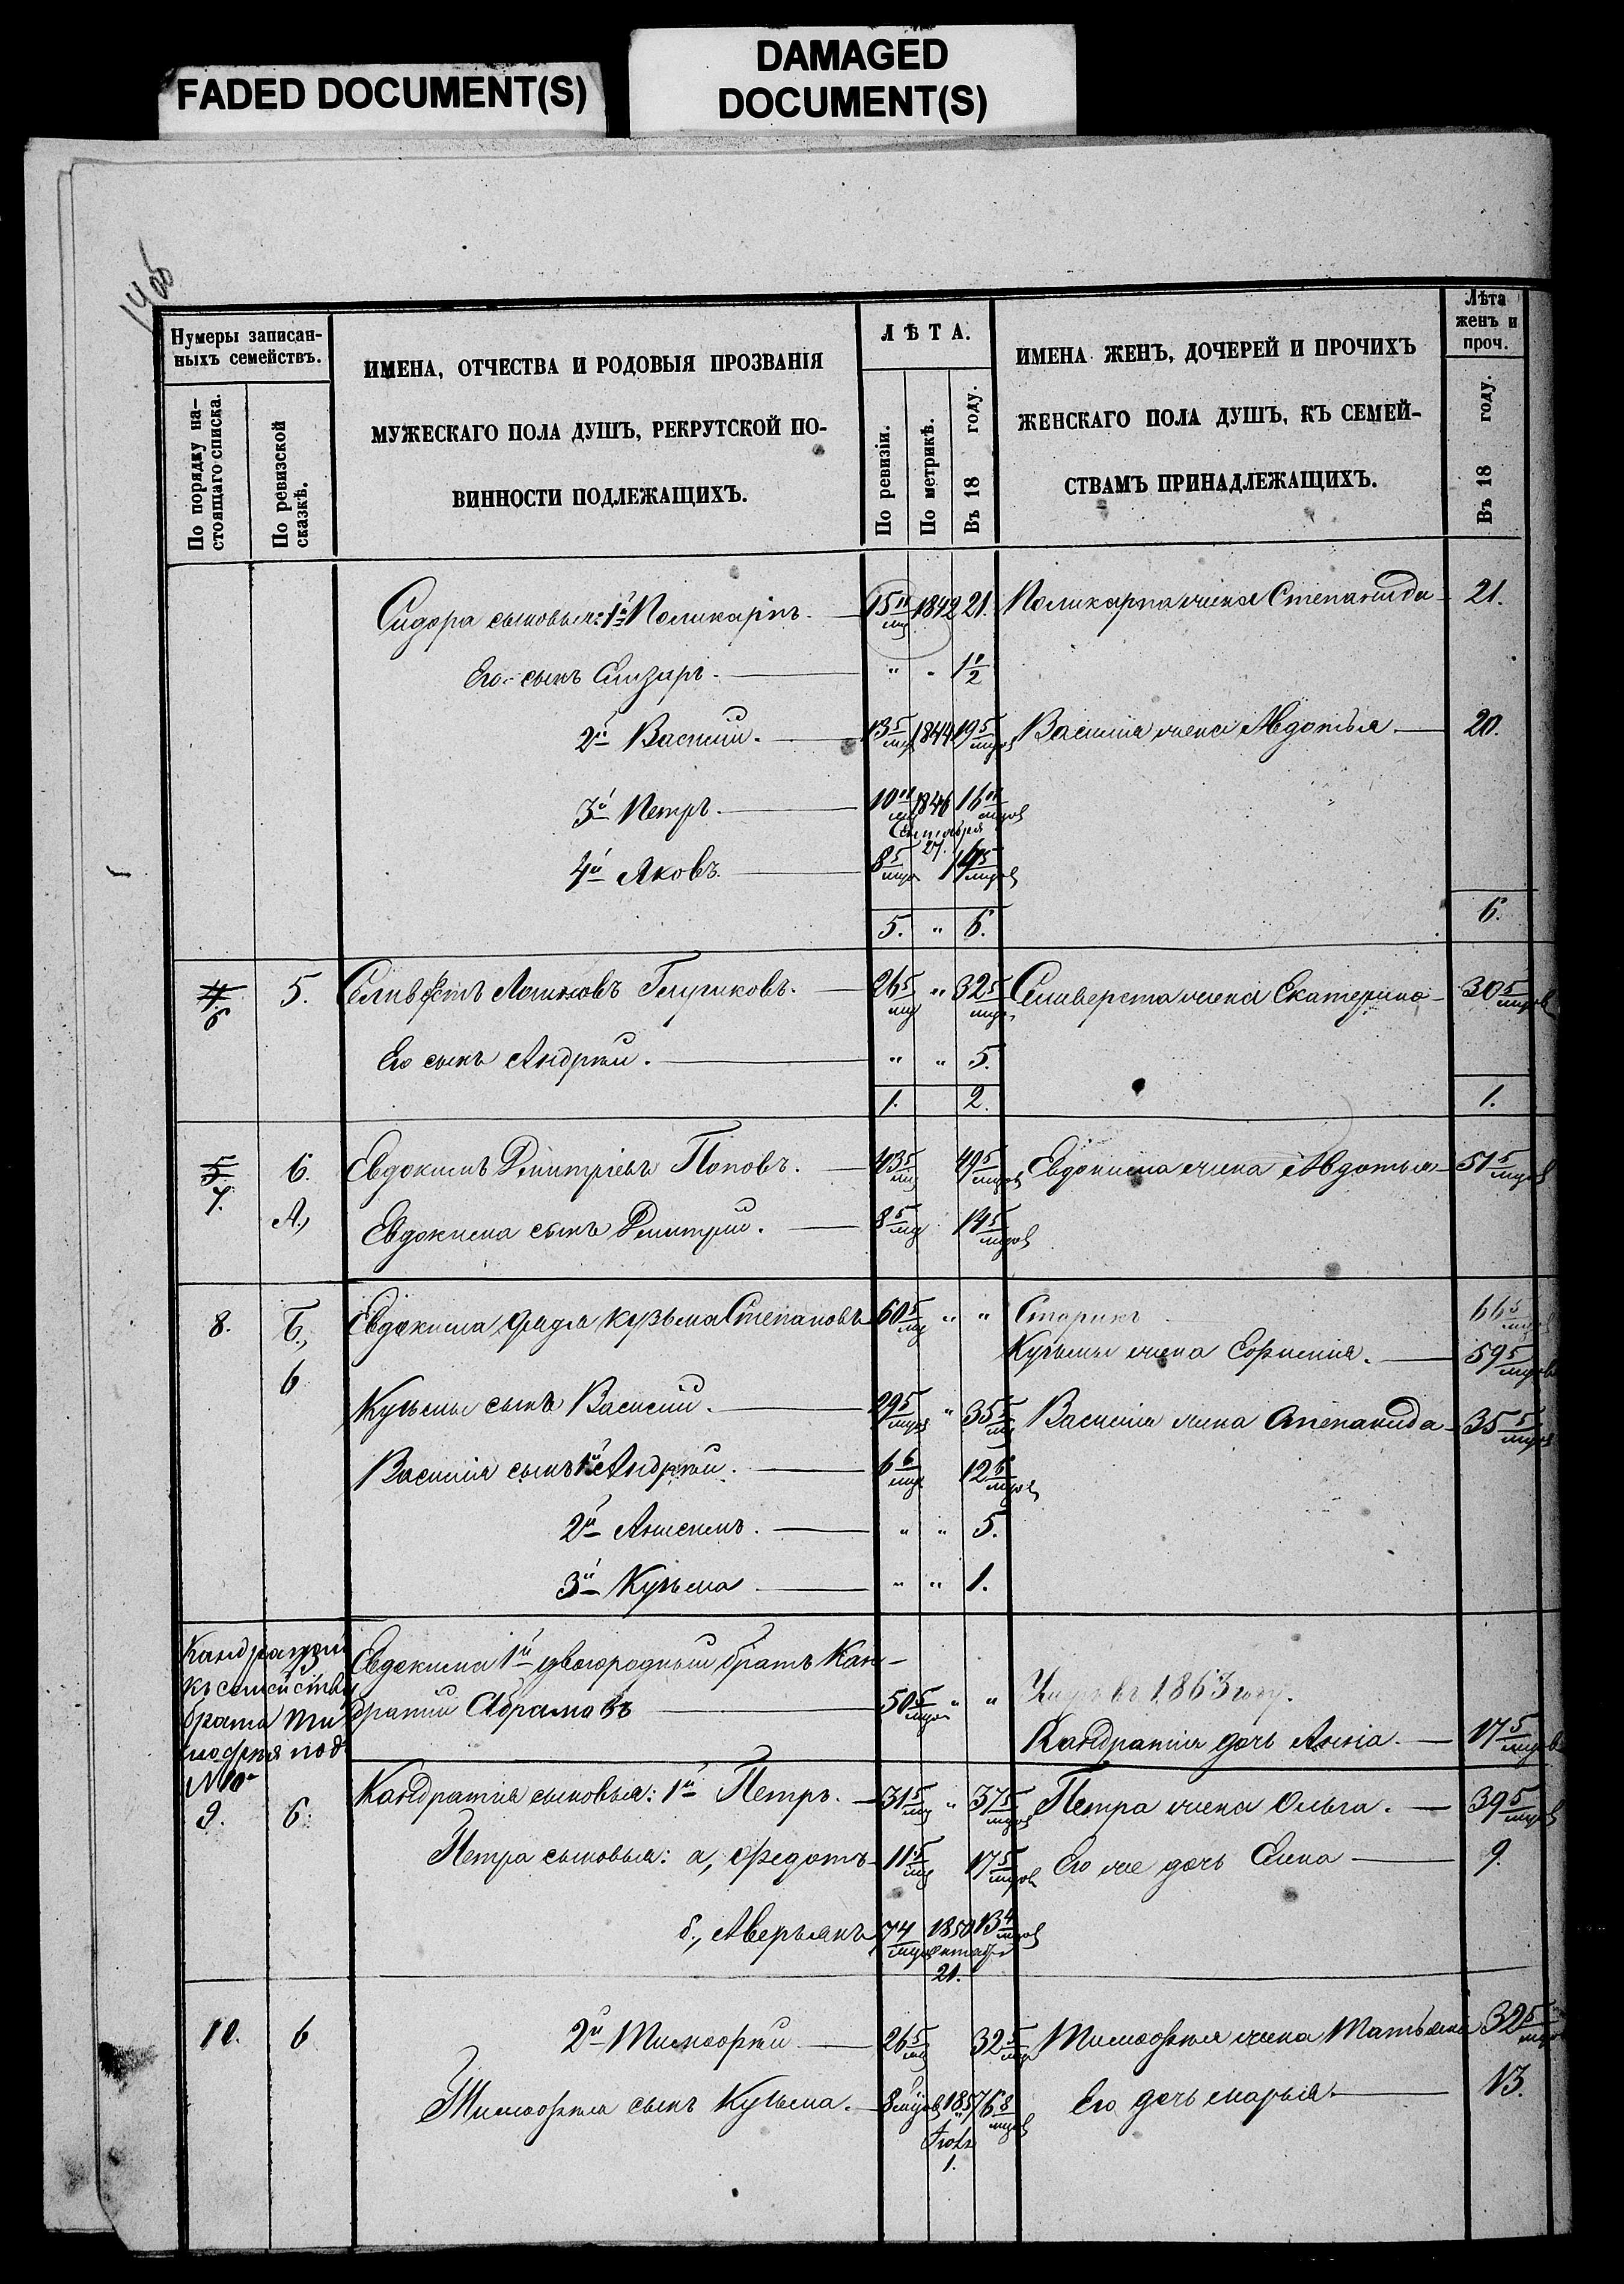 FADED DOCUMENT(S)
DAMAGED
DOCUMENT(S)
Нумеры записан-
ныхъ семействъ.
По порядку на-
стоящаго списка.
По ревизской
сказкѣ.
ИМЕНА, ОТЧЕСТВА И РОДОВЫЯ ПРОЗВАНІЯ
МУЖЕСКАГО ПОЛА ДУШЪ, РЕКРУТСКОЙ ПО-
ВИННОСТИ ПОДЛЕЖАЩИХЪ.
ЛѢТА.
По ревизіи.
По метрикѣ.
Въ 18 году.
ИМЕНА ЖЕНЪ, ДОЧЕРЕЙ И ПРОЧИХЪ
ЖЕНСКАГО ПОЛА ДУШЪ, КЪ СЕМЕЙ-
СТВАМЪ ПРИНАДЛЕЖАЩИХЪ.
Лѣта
женъ и
проч.
Въ 18 году.
Сидора сыновья: 1й Поликарпъ. 15 11/мц 1842 21. Поликарпа жена Степанида 21.
Его сынъ Елизаръ. " " 1/2
2й Василій. 13 5/мц 1844 19 5/мцов Василія жена Авдотья 20.
3й Петръ. 10 11/мц 1846 16 11/мцов
Сентября
27.
4й Яковъ. 8 5/мцов 14 5/мцов
5. " 6. 6.
4 6 5. Селиверстъ Логиновъ 26 5/мц " 32 5/мцов Селиверста жена Екатерина 30 5/мцов
Его сынъ Андрей. " " 5.
1. 2. 1.
5 7. 6. Евдокимъ Дмитріевъ Поповъ. 43 5/мц 49 5/мцов Евдокима жена Авдотья 51 5/мцов
А., Евдокима сынъ Дмитрій. 8 5/мц 14 5/мцов
8. Б., Евдокима дядя Кузьма Степановъ 60 5/мц " " Старикъ 66 5/мцов
6 Кузьмы жена 59 5/мцов
Кузьмы сынъ Василій. 29 5/мцов " 35 5/мц Василія жена Степанида 35 5/мцов
Василія сынъ 1й Андрей. 6 6/мц 12 6/мцов
2й " " 5.
3й Кузьма " " 1.
Кандратій
къ семейству
брата Ти
мофея под
№ 10м
Евдокима 1й двоюродный братъ Кан-
дратій Абрамовъ 50 5/мцов " " Умеръ въ 1863 году.
Кандратія дочь Анна. 17 5/мцов
9. 6. Кандратія сыновья: 1й Петръ. 31 5/мц " 37 5/мцов Петра жена Ольга. 39 5/мцов
Петра сыновья: а, Федотъ 11 5/мц 17 5/мцов Его же дочь Елена 9.
б., Аверьянъ 7 4/мцов 1850 13 4/мцов
Октября
21.
10. 6 2й Тимофей 26 5/мц 32 5/мцов Тимофея жена Татьяна 32 5/мцов
Тимофея сынъ Кузьма. 8 мцов 1857 6 8/мцов Его дочь Марья 13.
1.